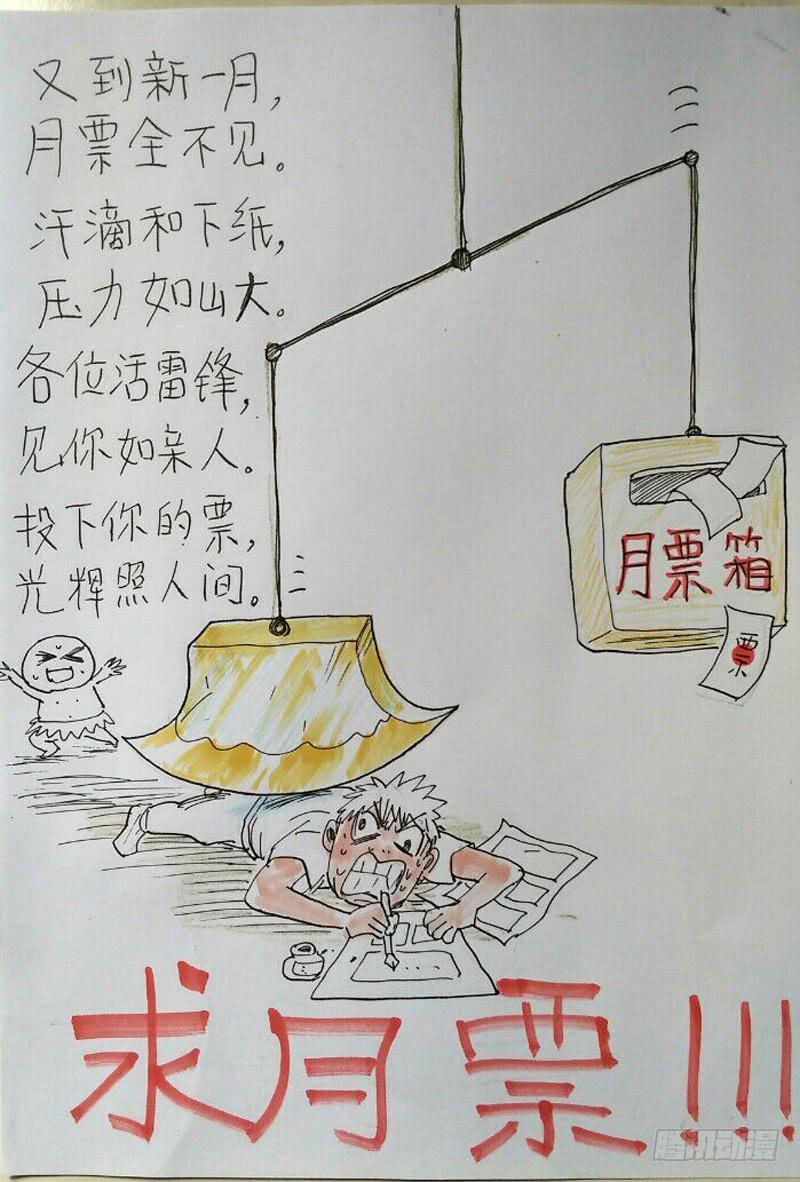 又到新一月，
月票全不见。
汗滴和下纸，
压力如山大。
各位活雷锋，
见你如亲人。
投下你的票，
光辉照人间。
月票箱
票
求月票!!!
腾讯动漫